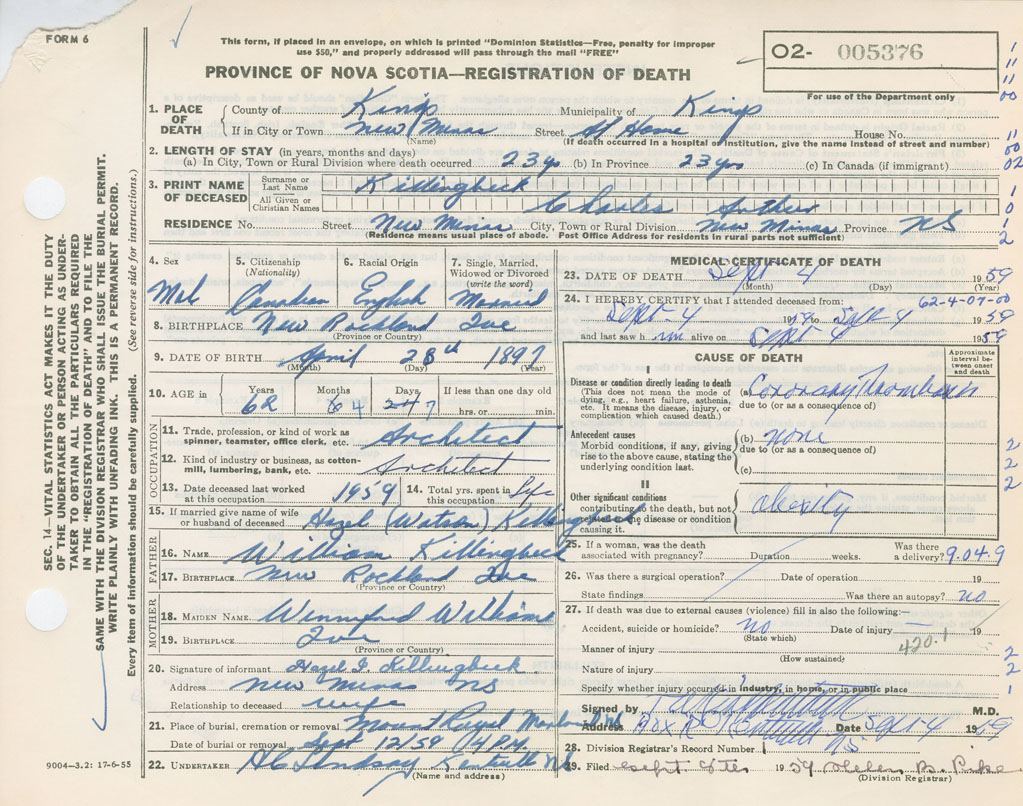 FORM 6
This form, if placed in an envelope, on which is printed "Dominion Statistics—Free, penalty for improper
use $50," and properly addressed will pass through the mail "FREE"
PROVINCE OF NOVA SCOTIA—REGISTRATION OF DEATH
02- 005376
For use of the Department only
1. PLACE OF DEATH County of Kings Municipality of Kings
If in City or Town New Minas Street At Home House No.
(Name) (If death occurred in a hospital or institution, give the name instead of street and number)
2. LENGTH OF STAY (in years, months and days)
(a) In City, Town or Rural Division where death occurred 23 yrs (b) In Province 23 yrs (c) In Canada (if immigrant)
3. PRINT NAME OF DECEASED Surname or Last Name Killingbeck
All Given or Christian Names Charles Arthur
RESIDENCE No. Street New Minas City, Town or Rural Division New Minas Province NS
(Residence means usual place of abode. Post Office Address for residents in rural parts not sufficient)
4. Sex 5. Citizenship (Nationality) 6. Racial Origin 7. Single, Married, Widowed or Divorced (write the word)
Mal Canadian English Married
8. BIRTHPLACE New Rockland Que
(Province or Country)
9. DATE OF BIRTH April 28th 1897
(Month) (Day) (Year)
10. AGE in Years Months Days If less than one day old
62 4 7 hrs. or min.
OCCUPATION
11. Trade, profession, or kind of work as spinner, teamster, office clerk, etc. Architect
12. Kind of industry or business, as cotton-mill, lumbering, bank, etc. Architect
13. Date deceased last worked at this occupation 1959 14. Total yrs. spent in this occupation Life
15. If married give name of wife or husband of deceased Hazel (Watson) Killingbeck
FATHER
16. NAME William Killingbeck
17. BIRTHPLACE New Rockland Que
(Province or Country)
MOTHER
18. MAIDEN NAME Winnifred Williams
19. BIRTHPLACE Que
(Province or Country)
20. Signature of informant Hazel I. Killingbeck
Address New Minas NS
Relationship to deceased wife
21. Place of burial, cremation or removal Mount Royal Montreal
Date of burial or removal Sept 1959
22. UNDERTAKER Lindsay Kentville NS
(Name and address)
MEDICAL CERTIFICATE OF DEATH
23. DATE OF DEATH Sept 4 1959
(Month) (Day) (Year)
24. I HEREBY CERTIFY that I attended deceased from: 62-4-07-00
Sept 4 1959 to Sept 4 1959
and last saw him alive on Sept 4 1959
CAUSE OF DEATH
Approximate interval between onset and death
I
Disease or condition directly leading to death
(This does not mean the mode of dying, e.g., heart failure, asthenia, etc. It means the disease, injury, or complication which caused death.)
(a) Coronary Thrombosis
due to (or as a consequence of)
Antecedent causes
Morbid conditions, if any, giving rise to the above cause, stating the underlying condition last.
(b) none
due to (or as a consequence of)
(c)
II
Other significant conditions
contributing to the death, but not related to the disease or condition causing it.
obesity
25. If a woman, was the death associated with pregnancy? Duration weeks. Was there a delivery? 9.04.9
26. Was there a surgical operation? Date of operation 19
State findings Was there an autopsy? no
27. If death was due to external causes (violence) fill in also the following:—
Accident, suicide or homicide? no Date of injury — 19
(State which) 420.1
Manner of injury
(How sustained)
Nature of injury
Specify whether injury occurred in industry, in home, or in public place
Signed by M.D.
Address Kentville NS Date Sept 4 1959
28. Division Registrar's Record Number
29. Filed Sept 1959 Helen B.
(Division Registrar)
SEC. 14—VITAL STATISTICS ACT MAKES IT THE DUTY
OF THE UNDERTAKER OR PERSON ACTING AS UNDER-
TAKER TO OBTAIN ALL THE PARTICULARS REQUIRED
IN THE "REGISTRATION OF DEATH" AND TO FILE THE
SAME WITH THE DIVISION REGISTRAR WHO SHALL ISSUE THE BURIAL PERMIT.
WRITE PLAINLY WITH UNFADING INK. THIS IS A PERMANENT RECORD.
Every item of information should be carefully supplied. (See reverse side for instructions.)
9004—3.2: 17-6-55